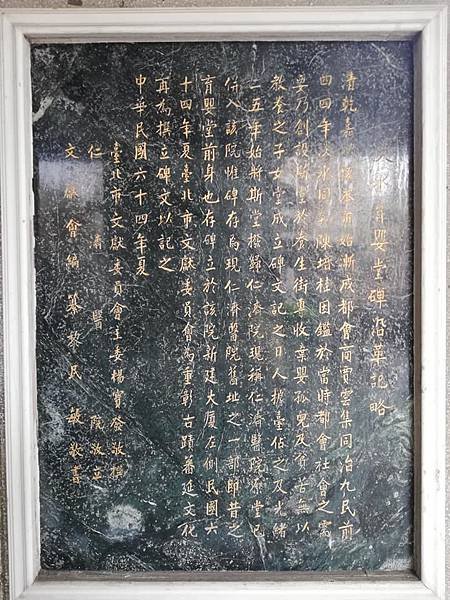 淡水育嬰堂碑沿革記略
清乾嘉艋舺始漸成都會商賈雲集同治九民前
四四年淡水同知陳培桂因鑑於當時都會社會之需
要乃創設斯堂於養生街專收棄嬰孤兒及貧苦無以
教養之子女堂成立碑文記之日人據臺佔之及光緒
二五年始將斯堂撥歸仁濟院現稱仁濟醫院原堂已
併入該院惟碑存為現仁濟醫院舊址之一部即昔之
育嬰堂前身也存碑立於該院新建大廈左側民國六
十四年夏臺北市文獻委員會為重彰古蹟蕃延文化
再為撰立碑文以記之
中華民國六十四年夏
臺北市文獻委員會主委楊寶發敬撰
仁濟醫院敬立
文獻會編纂黎民敬書